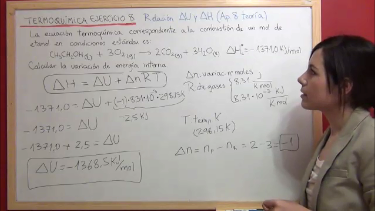 TERMOQUÍMICA EJERCICIO 8 Relación ΔU y ΔH (Ap. 8 teoría)
La ecuación termoquímica correspondiente a la combustión de un mol de
etanol en condiciones estándar es:
CH₃CH₂OH(l) + 3O₂(g) → 2CO₂(g) + 3H₂O(l) ΔH° = -1371,0 KJ/mol
Calcular la variación de energía interna
ΔH = ΔU + ΔnRT
-1371,0 = ΔU + (-1)·8'31·10⁻³·298,15
2,5 KJ
-1371,0 = ΔU
-1371,0 + 2,5 = ΔU
ΔU = -1368,5 KJ/mol
Δn: variac moles
R de gases 8'31 J/K·mol
8'31·10⁻³ KJ/K·mol
T temp. K
(298,15K)
Δn = np - nR = 2 - 3 = -1